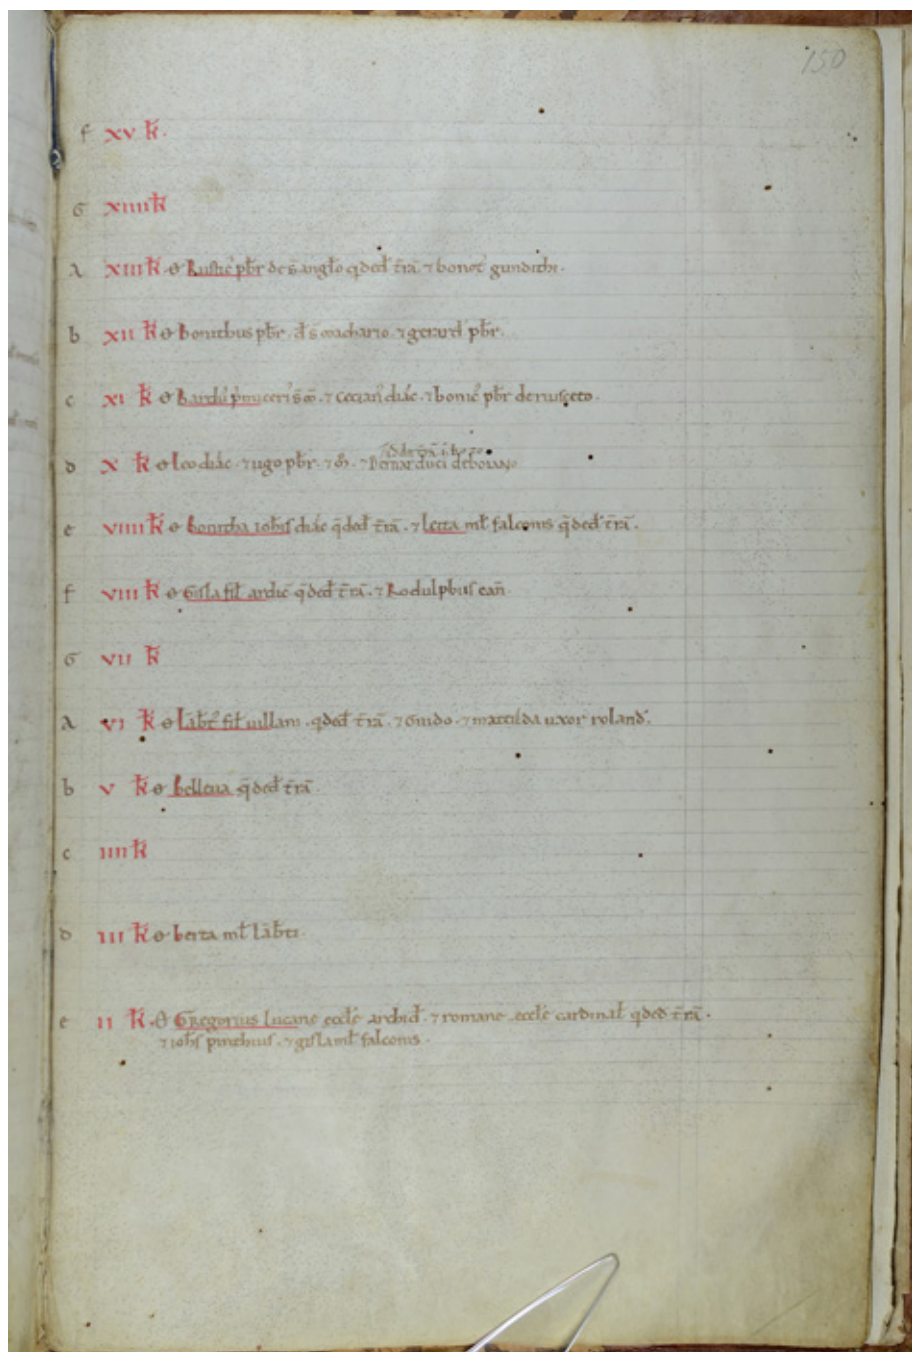 150
f xv k̄.
G xiiii k̄
A xiii k̄ ꝋ Rustic' pb̄r de s̄ angl̄o q̄ ded̄ t̄rā ⁊ bonoc' gundithi.
b xii k̄ ꝋ bonithus pb̄r. d̄ s̄ machario. ⁊ gerard' pb̄r.
c xi k̄ ꝋ diac̄. ⁊ bonic' pb̄r de rusceto.
d x k̄ ꝋ leo diac̄. ⁊ ugo pb̄r. ⁊ m̄. ⁊ Bernarduci de boiano
e viiii k̄ ꝋ bonitha ioh̄is diac̄ q̄ ded̄ t̄rā. ⁊ berta ml̄ falconis q̄ ded̄ t̄rā.
f viii k̄ ꝋ Gisla fil̄ ardic̄ q̄ ded̄ t̄rā. ⁊ Rodulphus can̄.
G vii k̄
A vi k̄ ꝋ lābt' fil̄ uillani. q̄ ded̄ t̄rā. ⁊ Guido. ⁊ mattilda uxor roland'.
b v k̄ ꝋ Belleua q̄ ded̄ t̄rā.
c iiii k̄
d iii k̄ ꝋ berta ml̄ lābti.
e ii k̄. ꝋ Gregorius lucane eccl̄e archid̄. ⁊ romane eccl̄e cardinal̄ q̄ ded̄ t̄rā.
⁊ ioh̄s pinthius. ⁊ gisla ml̄ falconis.